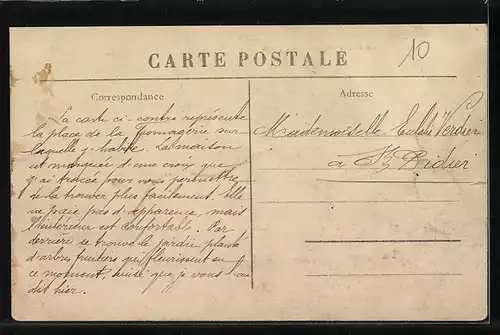 CARTE POSTALE
10
Correspondance
Adresse
La carte ci-contre représente
la place de la fromagerie sur
laquelle j'habite. La maison
est marquée d'une croix que
j'ai tracée pour vous permettre
de la trouver plus facilement. Elle
ne paie pas d'apparence, mais
l'intérieur est confortable. Par
derrière se trouve le jardin planté
d'arbres fruitiers qui fleurissent en
ce moment, ainsi que je vous l'ai
dit hier.
Mademoiselle Eulalie Verdier
à St Didier